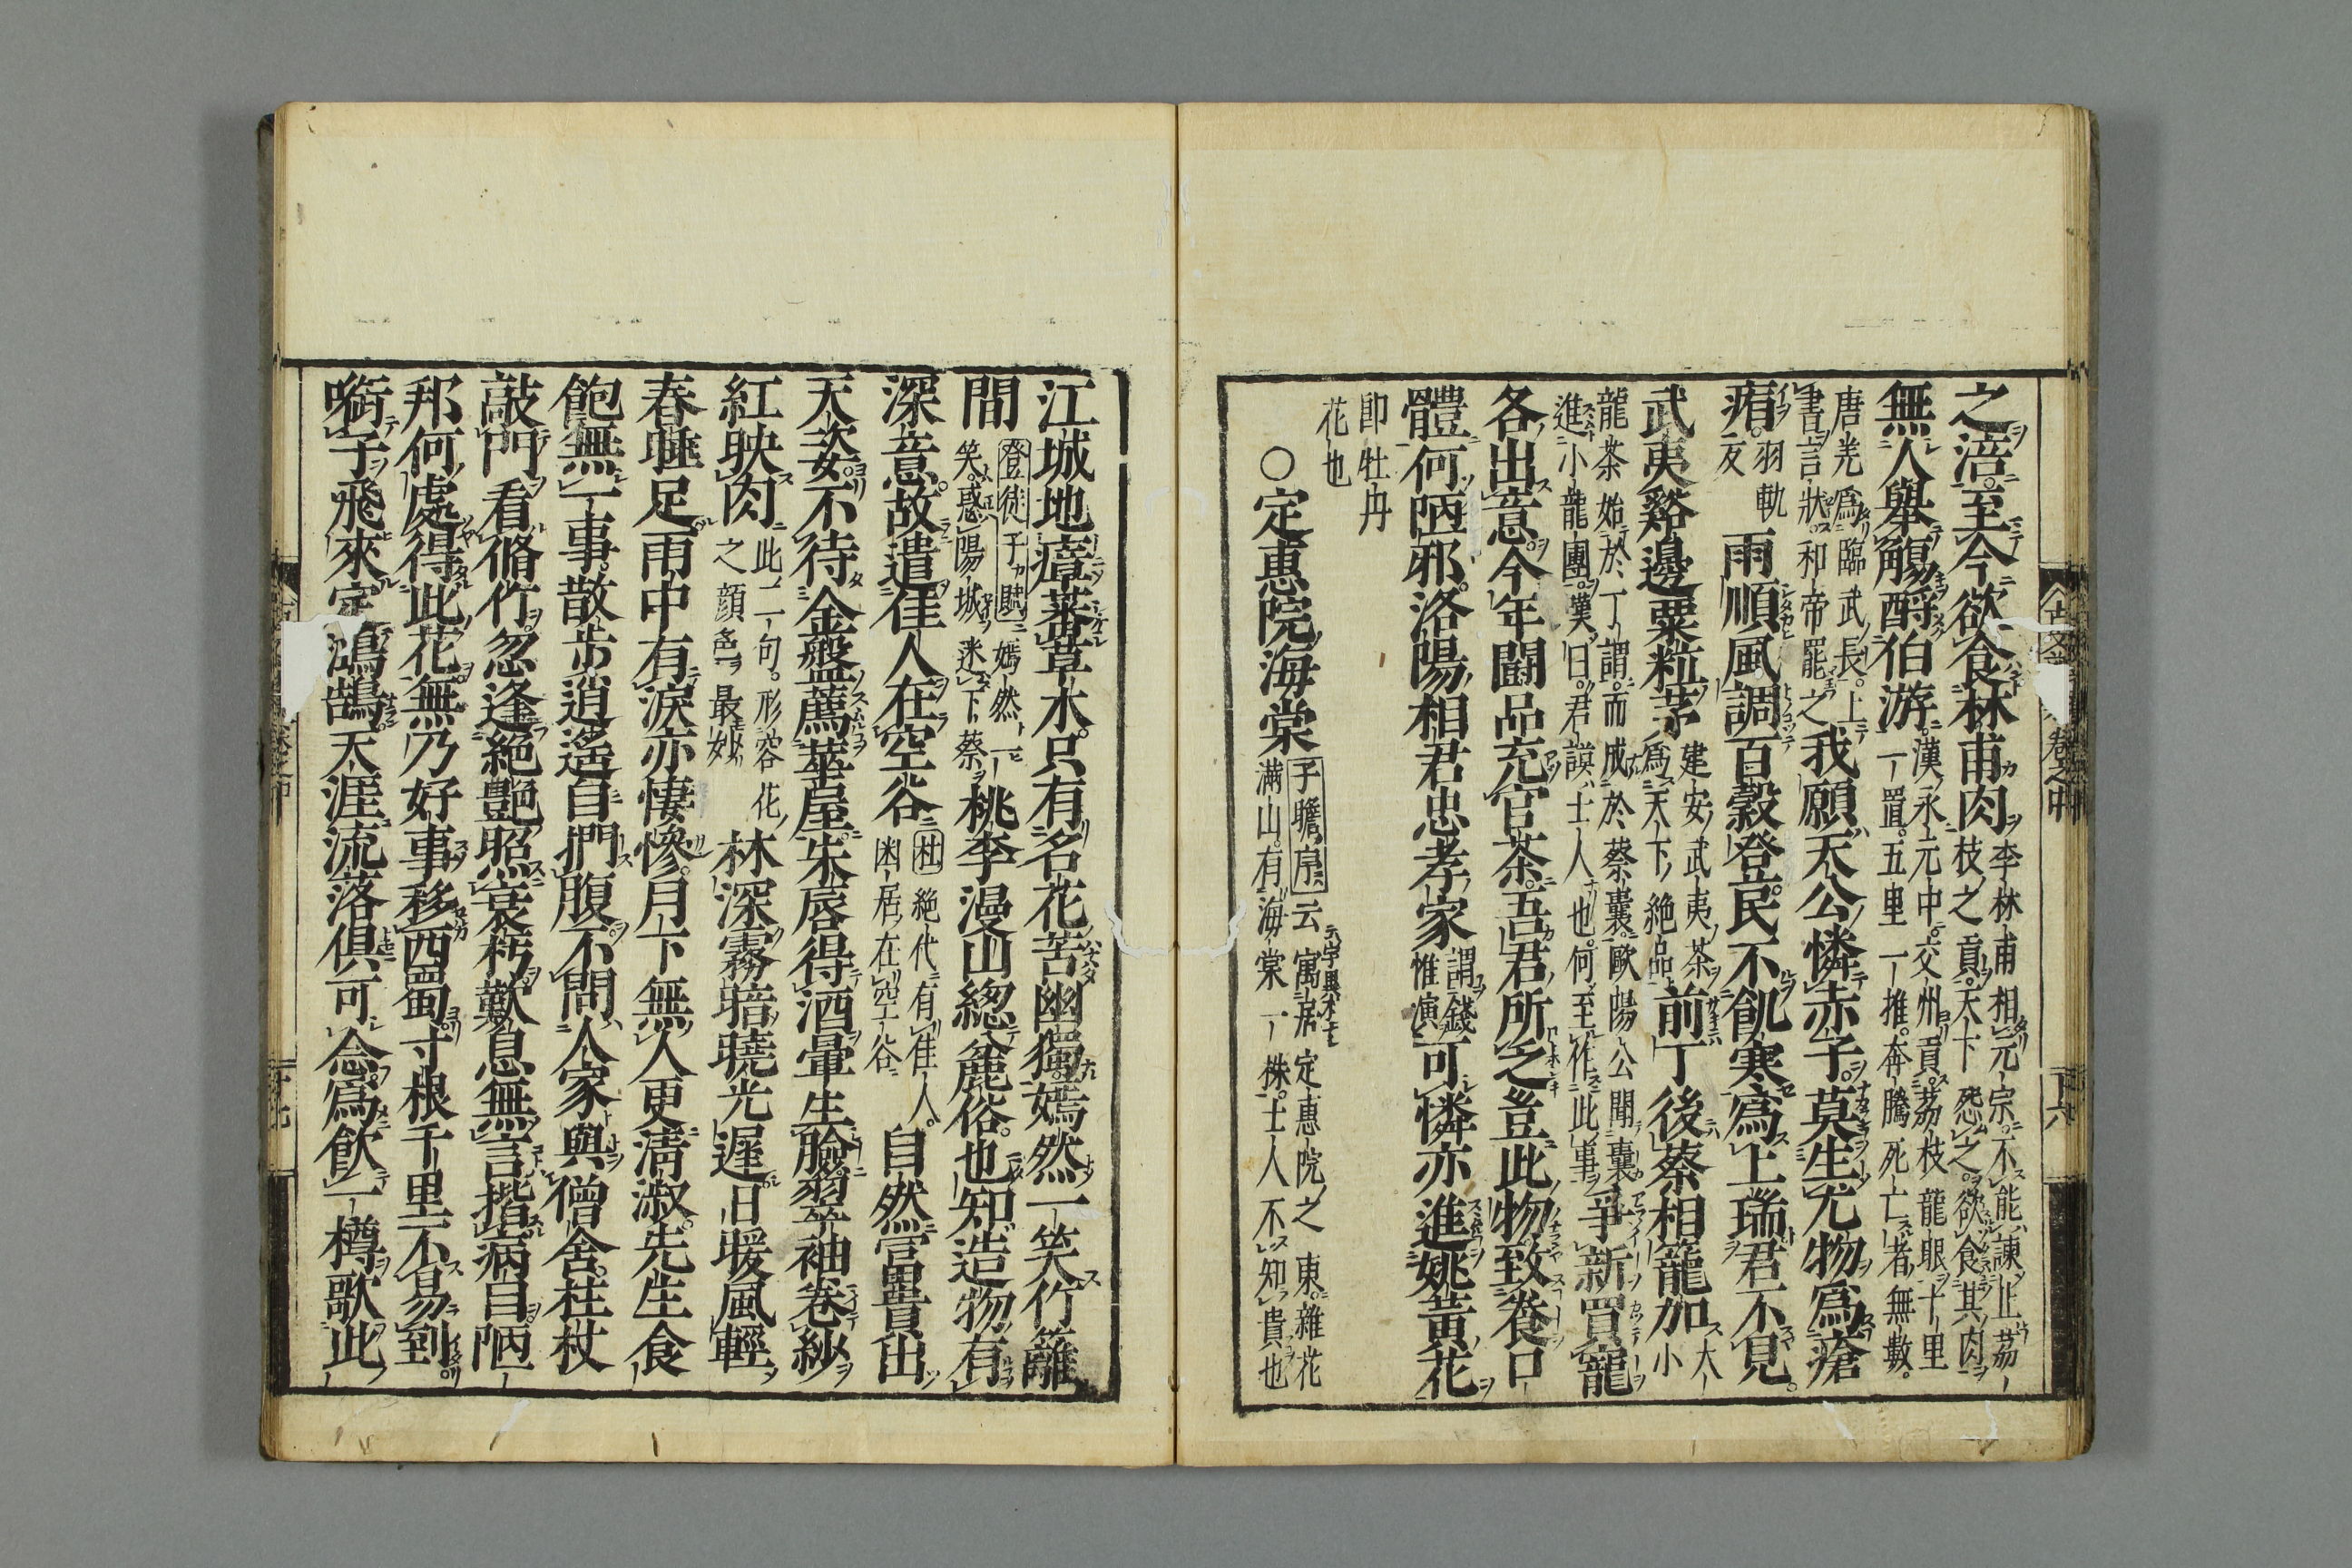 之涪至今欲食林甫肉
李林甫相元宗不能諫止荔
枝之貢天下怨之欲食其肉
無人舉觴酹伯游
漢永元中交州貢荔枝龍眼十里
一置五里一推奔騰死亡者無數
唐羌爲臨武長上
書言狀和帝罷之
我願天公憐赤子莫生尤物爲瘡
痏
羽軌
反
雨順風調百穀登民不飢寒爲上瑞君不見
武夷谿邊粟粒茅
建安武夷茶
爲天下絶品
前丁後蔡相籠加
大
小
龍茶始於丁謂而成於蔡襄歐陽公聞襄
進小龍團嘆曰君謨士人也何至作此事
爭新買寵
各出意今年鬪品充官茶吾君所乏豈此物致養口
體何陋邪洛陽相君忠孝家
謂錢
惟演
可憐亦進姚黃花
卽牡丹
花也
○定惠院海棠
子瞻序云寓居定惠院之東雜花
滿山有海棠一株土人不知貴也
江城地瘴蕃草木只有名花苦幽獨嫣然一笑竹籬
間
登徒子賦嫣然一
笑惑陽城迷下蔡
桃李漫山總麄俗也知造物有
深意故遣佳人在空谷
杜絶代有佳人
幽居在空谷
自然富貴出
天姿不待金盤薦華屋朱脣得酒暈生臉翠袖卷紗
紅映肉
此二句形容花
之顔色最妙
林深霧暗曉光遲日暖風輕
春睡足雨中有淚亦悽慘月下無人更淸淑先生食
飽無一事散步逍遙自捫腹不問人家與僧舍拄杖
敲門看脩竹忽逢絶艶照衰朽歎息無言揩病目陋
邦何處得此花無乃好事移西蜀寸根千里不易到
銜子飛來定鴻鵠天涯流落俱可念爲飮一樽歌此